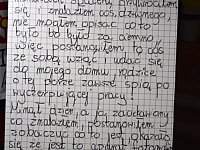 spacerm przyjrzałem
się, i znalazłem coś, dziwnego
nie mogłem opisać co to
było bo było za ciemno
więc postanowiłem to coś
ze sobą wziąć i udać się
do mojego domu, rodzice
o tej porze zawsze śpią po
wyczerpującej pracy!
Minął dzień a ja, zaciekawiony
co znalazłem postanowiłem
zobaczyć co to jest, okazało
się że jest to